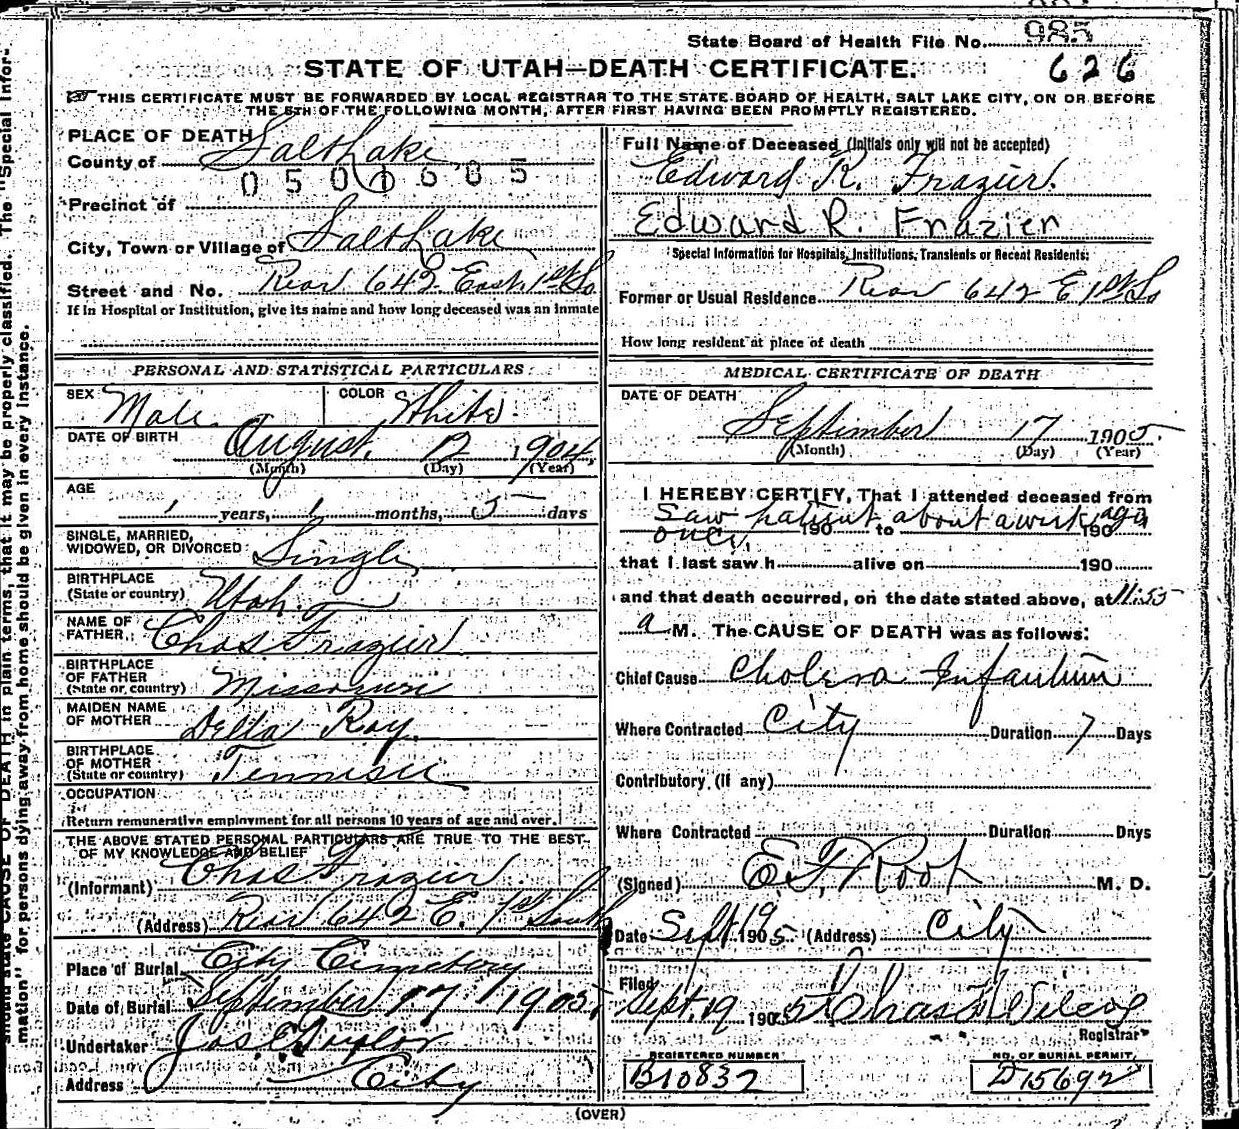 State Board of Health File No. 985
STATE OF UTAH—DEATH CERTIFICATE.
626
THIS CERTIFICATE MUST BE FORWARDED BY LOCAL REGISTRAR TO THE STATE BOARD OF HEALTH, SALT LAKE CITY, ON OR BEFORE
THE 5TH OF THE FOLLOWING MONTH, AFTER FIRST HAVING BEEN PROMPTLY REGISTERED.
PLACE OF DEATH
County of Salt Lake
Precinct of
City, Town or Village of Salt Lake
Street and No. Rear 642 East 1st So
If in Hospital or Institution, give its name and how long deceased was an inmate
Full Name of Deceased (Initials only will not be accepted)
Edward R. Frazier.
Edward R. Frazier
Special Information for Hospitals, Institutions, Transients or Recent Residents:
Former or Usual Residence Rear 642 E 1st So
How long resident at place of death
PERSONAL AND STATISTICAL PARTICULARS
SEX Male COLOR White.
DATE OF BIRTH August 12 1904
(Month) (Day) (Year)
AGE
1 years, 1 months, 5 days
SINGLE, MARRIED,
WIDOWED, OR DIVORCED Single
BIRTHPLACE
(State or country) Utah.
NAME OF
FATHER Chas Frazier
BIRTHPLACE
OF FATHER
(State or country) Missouri
MAIDEN NAME
OF MOTHER Della Ray
BIRTHPLACE
OF MOTHER
(State or country) Tennisee
OCCUPATION
Return remunerative employment for all persons 10 years of age and over.
THE ABOVE STATED PERSONAL PARTICULARS ARE TRUE TO THE BEST
OF MY KNOWLEDGE AND BELIEF
(Informant) Chas Frazier
(Address) Rear 642 E. 1st South
Place of Burial City Cemetery
Date of Burial September 17 1905
Undertaker Jos E Taylor
Address City
MEDICAL CERTIFICATE OF DEATH
DATE OF DEATH
September 17 1905.
(Month) (Day) (Year)
I HEREBY CERTIFY, That I attended deceased from
Saw patient about a week ago
once, 190 to 190
that I last saw h alive on 190
and that death occurred, on the date stated above, at 11:55
a M. The CAUSE OF DEATH was as follows:
Chief Cause Cholera Infantum
Where Contracted City Duration 7 Days
Contributory (if any)
Where Contracted Duration Days
(Signed) E. F. Root M. D.
Date Sept 19 1905 (Address) City
Filed
Sept. 19 1905 Chas
Registrar
REGISTERED NUMBER
B10832
NO. OF BURIAL PERMIT
D15692
(OVER)
should state CAUSE OF DEATH in plain terms, that it may be properly classified. The "Special Infor-
mation" for persons dying away from home should be given in every instance.